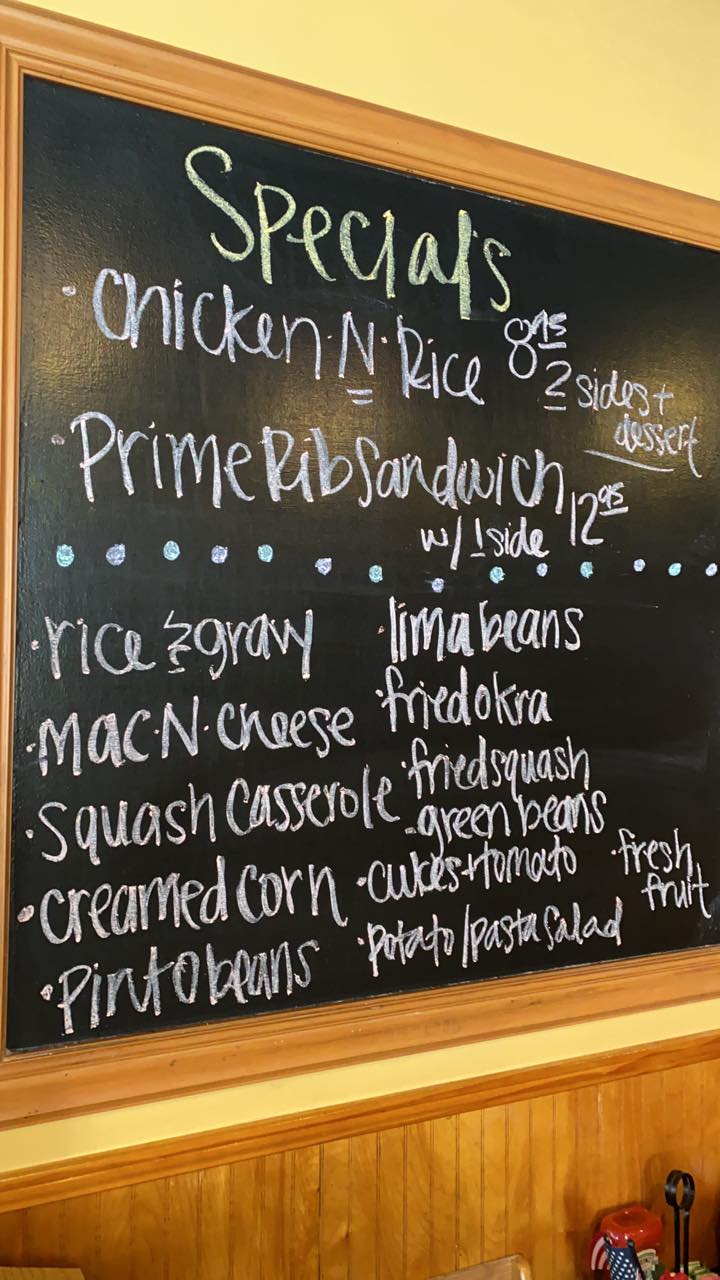 Specials
• Chicken • N • Rice 8.95
2 sides +
dessert
• Prime Rib Sandwich 12.95
w/ 1 side
• rice & gravy
• Mac • N • Cheese
• Squash Casserole
• creamed corn
• Pinto beans
• lima beans
• fried okra
• fried squash
- green beans
• cukes + tomato
• Potato/Pasta Salad
• fresh
fruit